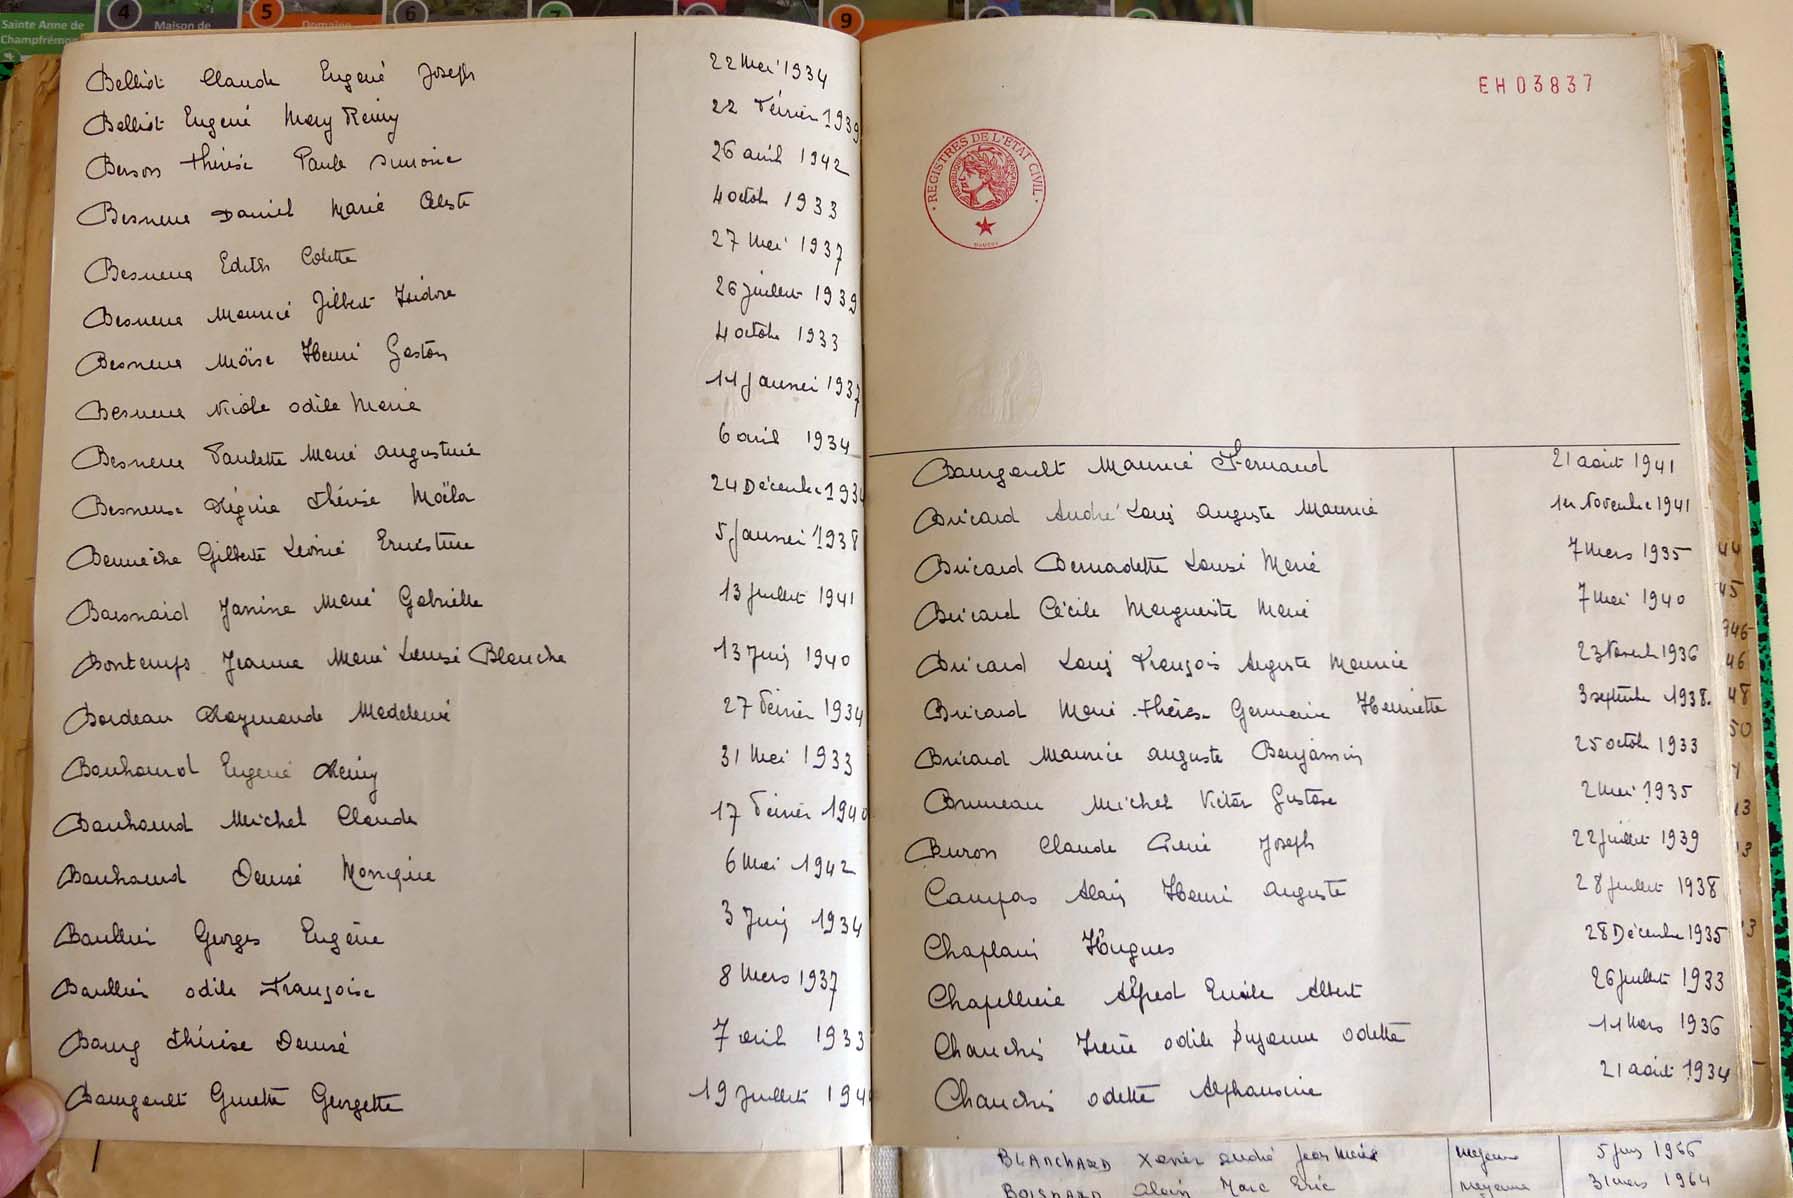 Sainte Anne de
Champfrémont
4
Maison de
5
Domaine
6
7
9
Belliot Claude Eugené Joseph 22 Mai 1934
Belliot Eugené Mary Rémy 22 Février 1939
Besson thérèse Paule Simone 26 avril 1942
Besneux Daniel Marié Celeste 4 octob 1933
Besneux Edith Colette 27 Mai 1937
Besneux Maurice Gilbert Isidore 26 juillet 1939
Besneux Moïse Henri Gaston 4 octobre 1933
Besneux Nicole odile Marie 14 Janvier 1937
Besneux Paulette Marie augustine 6 avril 1934
Besneux Régina thérèse 24 Décembre 1934
Gilberte Léonie Ernestine 5 Janvier 1938
Janine Marié Gabrielle 13 juillet 1941
Bontemps Jeanne Marié Louise Blanche 13 Juin 1940
Bordeau Raymonde Madeleine 27 Février 1934
Bouhours Eugené Rémy 31 Mai 1933
Bouhours Michel Claude 17 Février 1940
Bouhours Denise Monique 6 Mai 1942
Boullier Georges Eugène 3 Juin 1934
Boullier odile Françoise 8 Mars 1937
Bourg thérèse Denise 7 avril 1933
Bourgault Ginette Georgette 19 Juillet 194
EH03837
REGISTRES DE L'ÉTAT CIVIL
RÉPUBLIQUE FRANÇAISE
Bourgault Maurice Fernand 21 août 1941
Bricard André Louis auguste Maurice 1er Novembre 1941
Bricard Bernadette Louise Marie 7 Mars 1935
Bricard Cécile Marguerite Marie 7 Mai 1940
Bricard Louis François Auguste Maurice 23 Novemb 1936
Bricard Marie thérèse Germaine Henriette 3 septembre 1938.
Bricard Maurice auguste Benjamin 25 octob 1933
Bruneau Michel Victor Gustave 2 Mai 1935
Buron Claude René Joseph 22 juillet 1939
Campas Alain Henri auguste 28 juillet 1938
Chaplain Hugues 28 Décembre 1935
Chapellière Alfred Emile Albert 26 juillet 1933
Irène odile Suzanne odette 11 Mars 1936
odette Alphonsine 21 août 1934
44
45
946
46
48
50
BLANCHARD Xavier André Jean Marie Mayenne 5 juin 1966
BOISNARD Alain Marc Eric Mayenne 31 mars 1964